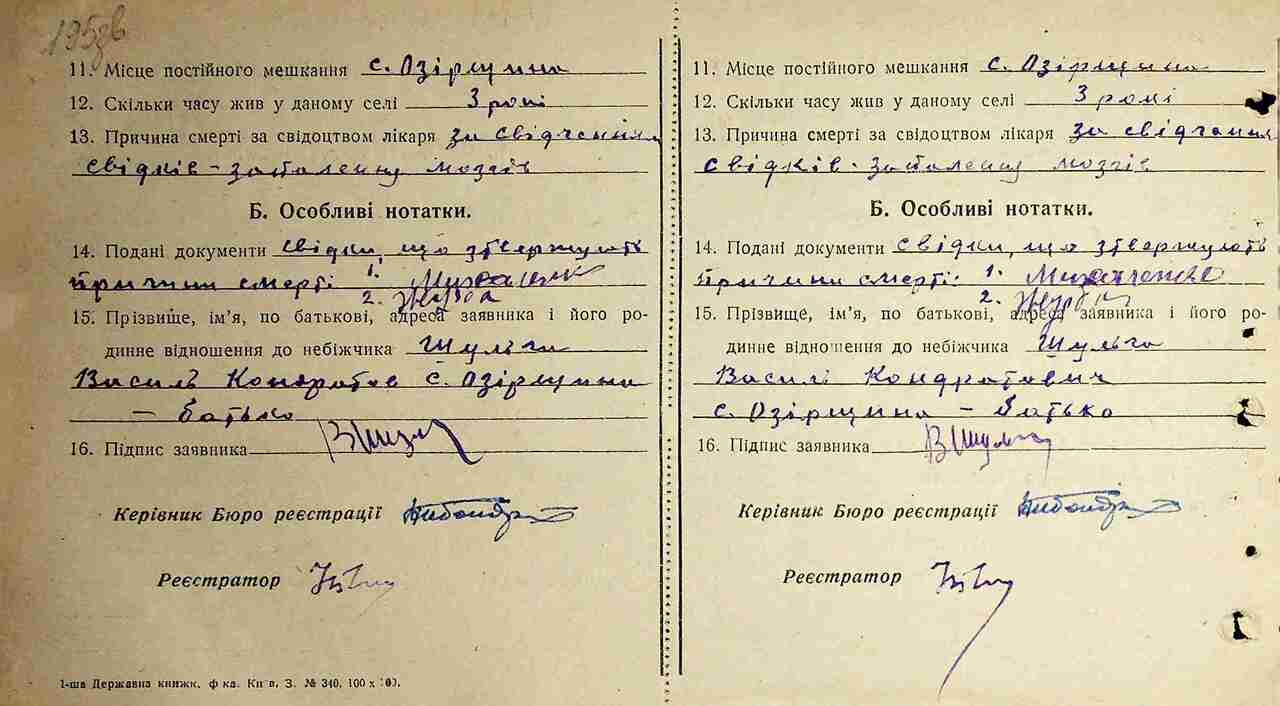 195зв
11. Місце постійного мешкання с. Озірщина
12. Скільки часу жив у даному селі 3 роки
13. Причина смерті за свідоцтвом лікаря за свідчення
свідків - запалення мозгів
Б. Особливі нотатки.
14. Подані документи свідки, що зтвержують
причини смерті: 1.
2. Журба
15. Прізвище, ім'я, по батькові, адреса заявника і його ро-
динне відношення до небіжчика Шульга
Василь Кондратов с. Озірщина
— батько
16. Підпис заявника
Керівник Бюро реєстрації
Реєстратор
1-ша Державна книжк. ф ка. Київ. З. № 340. 100 х 100.
11. Місце постійного мешкання с. Озірщина
12. Скільки часу жив у даному селі 3 роки
13. Причина смерті за свідоцтвом лікаря за свідчення
свідків - запалення мозгів
Б. Особливі нотатки.
14. Подані документи свідки, що зтвержують
причини смерті: 1.
2. Журба
15. Прізвище, ім'я, по батькові, адреса заявника і його ро-
динне відношення до небіжчика Шульга
Василь Кондратович
с. Озірщина — батько
16. Підпис заявника В Шульга
Керівник Бюро реєстрації
Реєстратор